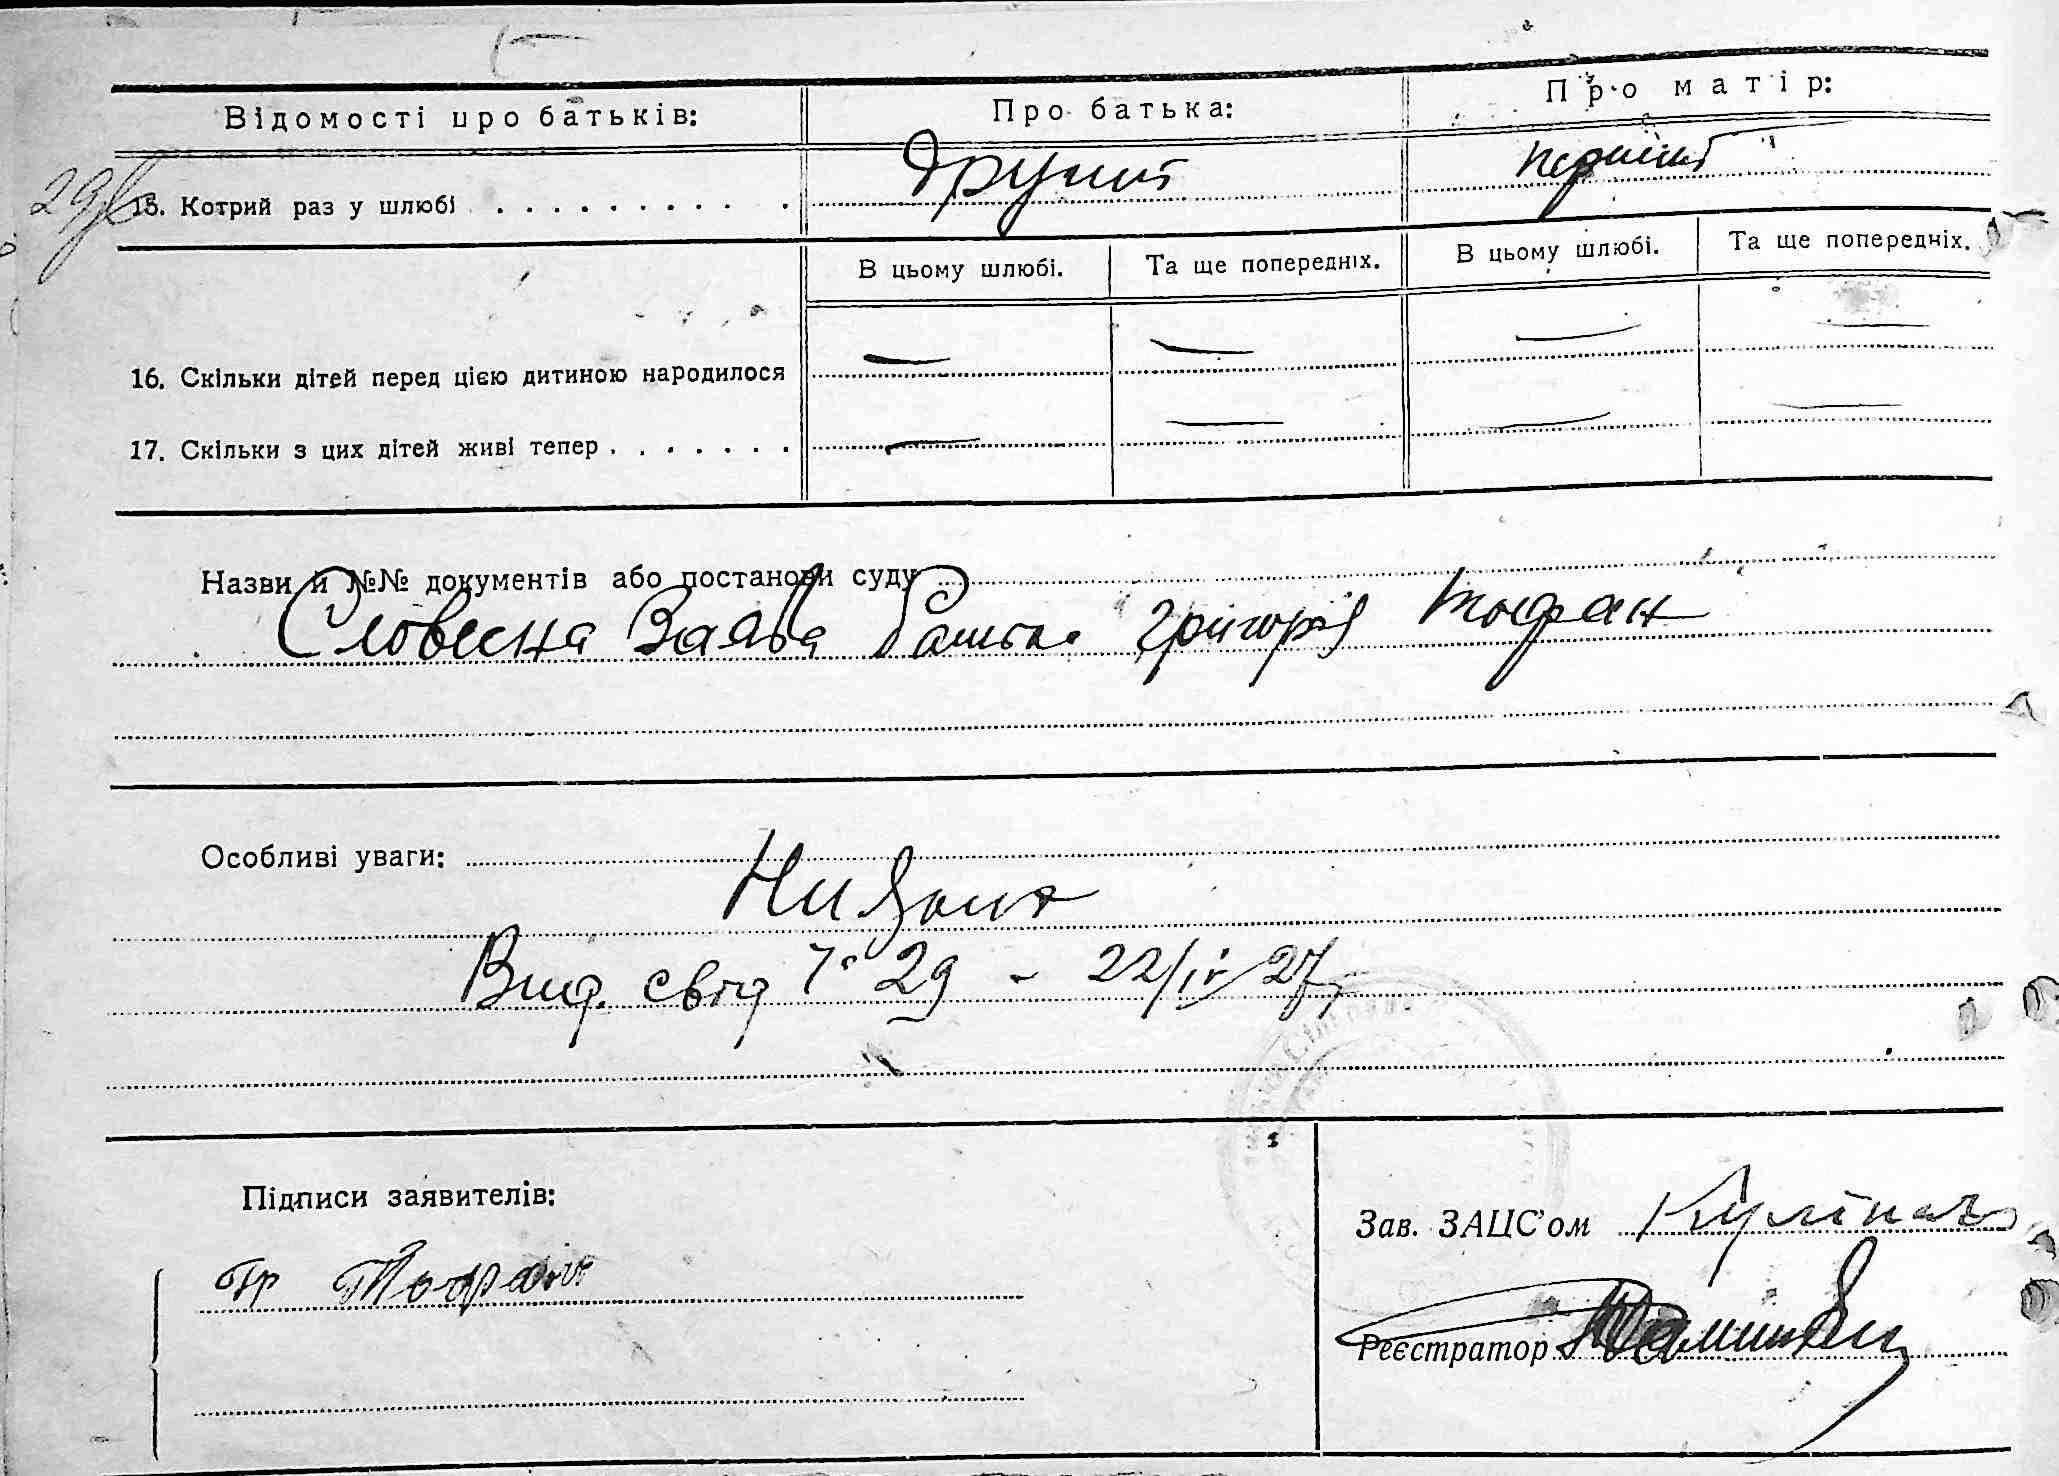 Відомості про батьків: Про батька: Про матір:
29
15. Котрий раз у шлюбі . . . . . . . . . . . другий перший
В цьому шлюбі. Та ще попередніх. В цьому шлюбі. Та ще попередніх.
16. Скільки дітей перед цією дитиною народилося — — — —
17. Скільки з цих дітей живі тепер . . . . . . . — — — —
Назви й №№ документів або постанови суду
Словесна Заява батька Григорія Тофан
Особливі уваги:
Вид. свід № 29 - 22/IV 27
Підписи заявителів:
Зав. ЗАЦС'ом
Гр Тофан
Реєстратор